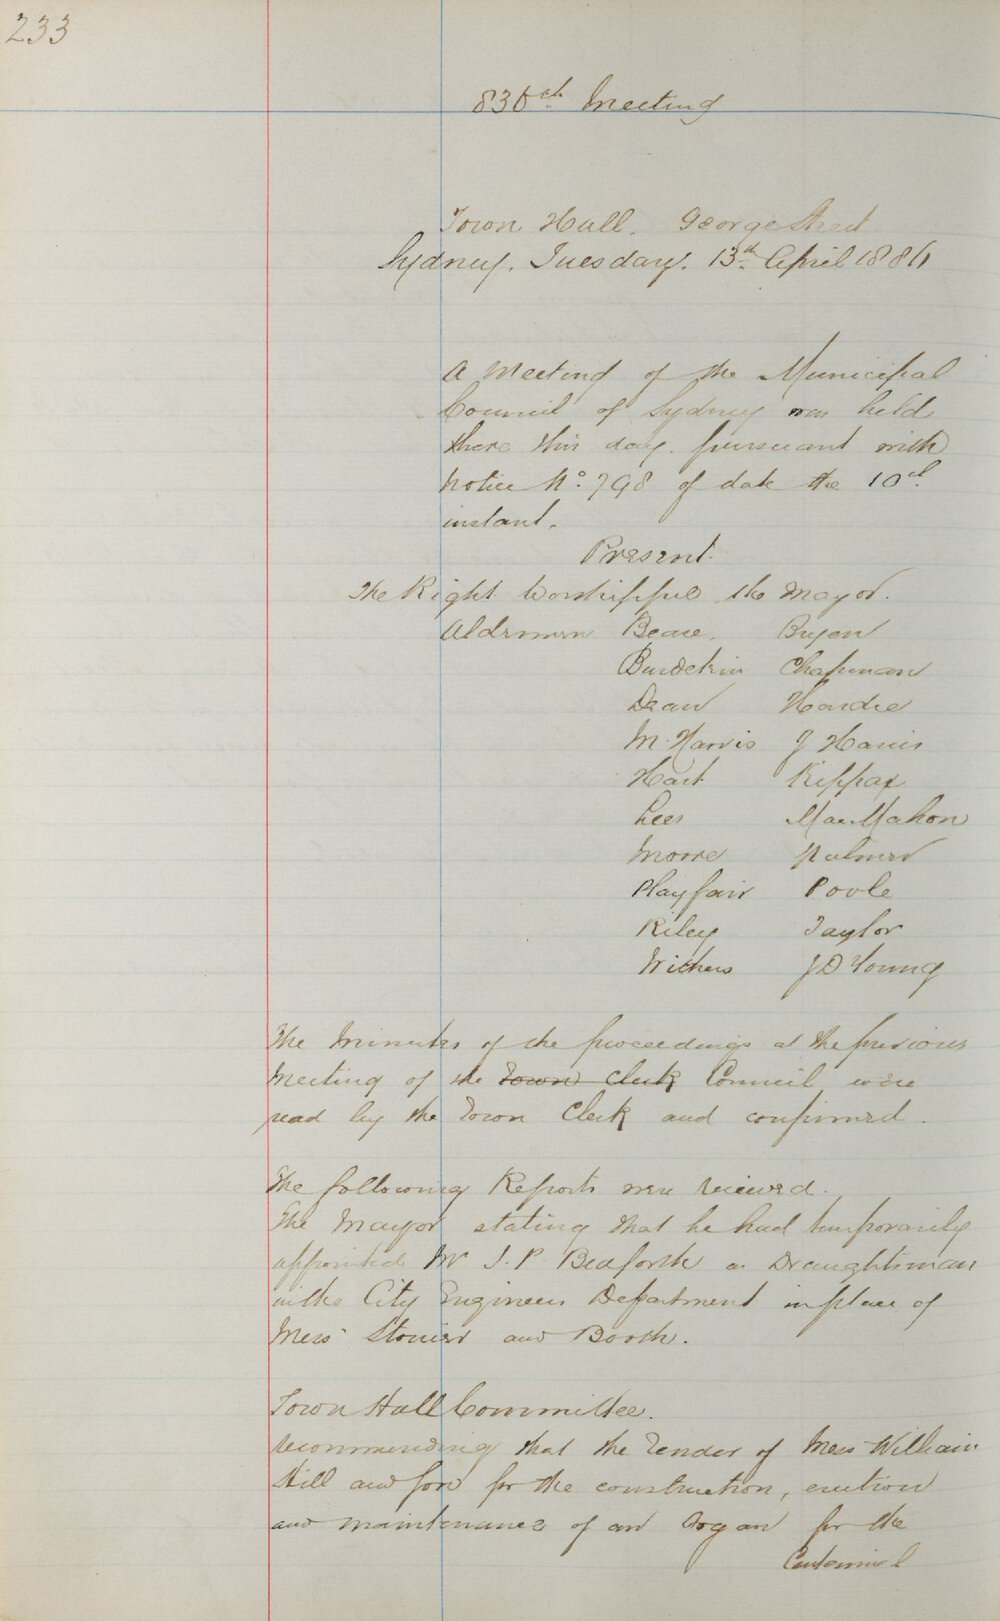 233
836th Meeting
Town Hall. George Street
Sydney. Tuesday. 13th April 1886
A Meeting of the Municipal
Council of Sydney was held
there this day pursuant with
notice No. 798 of date the 10th
instant.
Present.
The Right Worshipful the Mayor.
Aldermen Beare, Bryen
Burdekin Chapman
Dean Hardie
M. Harris J Harris
Hart Kippax
Lees MacMahon
Moore Palmer
Playfair Poole
Riley Taylor
Withers J D Young
The Minutes of the proceedings at the previous
Meeting of the Town Clerk Council were
read by the Town Clerk and confirmed.
The following Reports were received.
The Mayor stating that he had temporarily
appointed Mr J. P. as Draughtsman
in the City Engineers Department in place of
Messrs and Booth.
Town Hall Committee.
recommending that the Tender of Messrs William
Hill and Son for the construction, erection
and maintenance of an Organ for the
Centennial